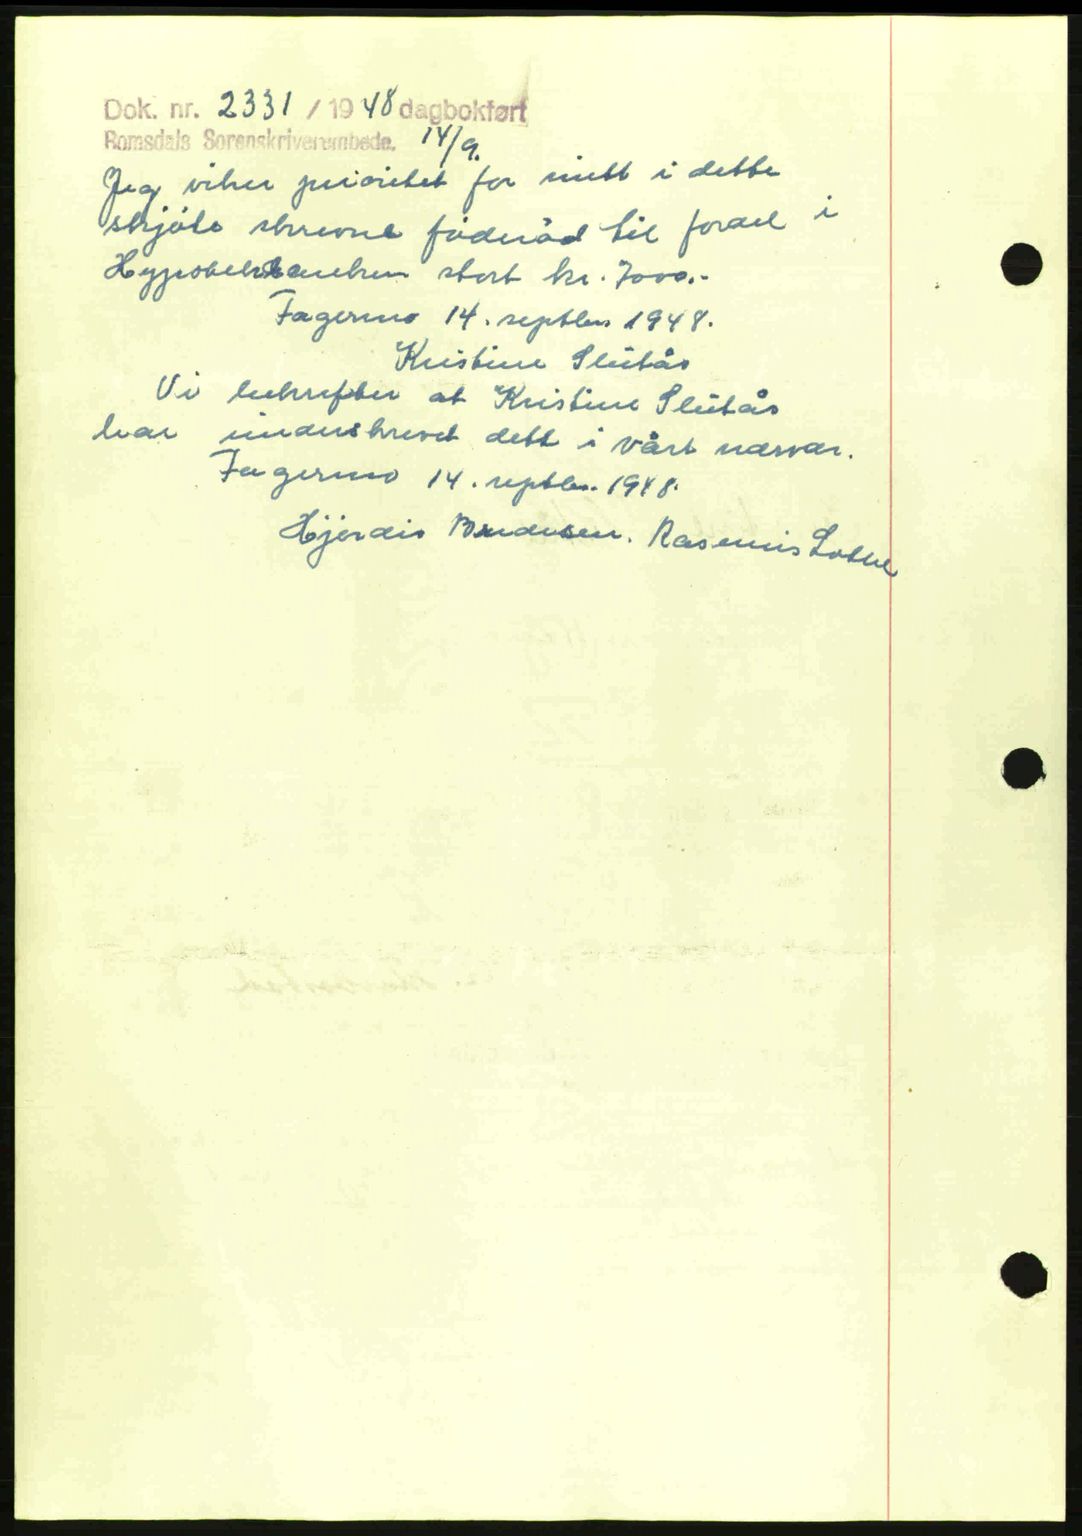 Dok. nr. 2331 / 1948 dagbokført
Romsdals Sorenskriverembede. 14/9.
Jeg viker prioritet for mitt i dette
skjøte skrevne föderåd til fordel i
Hypotekbanken stort kr. 7000.-
Fagermo 14. septbr. 1948.
Kristine Slutås
Vi bekrefter at Kristine Slutås
har underskrevet dett i vårt nærvær.
Fagermo 14. septbr. 1948.
Hjørdis Rasmus